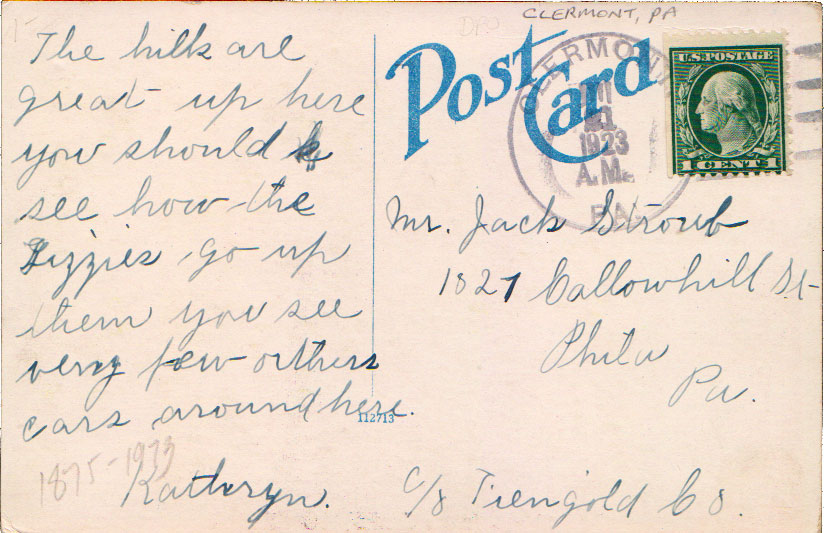 The hills are
great up here
you should
see how the
Lizzies go up
them you see
very few orthers
cars around here.
Kathryn.
1875-1933
112713
CLERMONT, PA
DPO
Post Card
CLERMONT
1923
A.M.
PA.
U.S. POSTAGE
1 CENT 1
Mr. Jack Stroub
1827 Callowhill St
Phila
Pa.
c/o Tiengold Co.